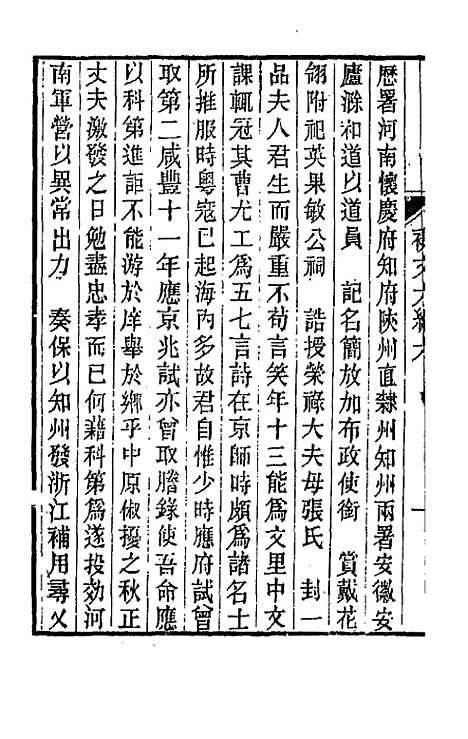 歷署河南懷慶府知府陝州直隸州知州兩署安徽安
廬滁和道以道員　記名簡放加布政使銜　賞戴花
翎附祀英果敏公祠　誥授榮祿大夫母張氏　封一
品夫人君生而嚴重不苟言笑年十三能爲文里中文
課輒冠其曹尤工爲五七言詩在京師時頗爲諸名士
所推服時粵寇已起海內多故君自惟少時應府試曾
取第二咸豐十一年應京兆試亦曾取謄錄使吾命應
以科第進詎不能游於庠舉於鄉乎中原俶擾之秋正
丈夫激發之日勉盡忠孝而已何藉科第爲遂投効河
南軍營以異常出力　奏保以知州發浙江補用尋又